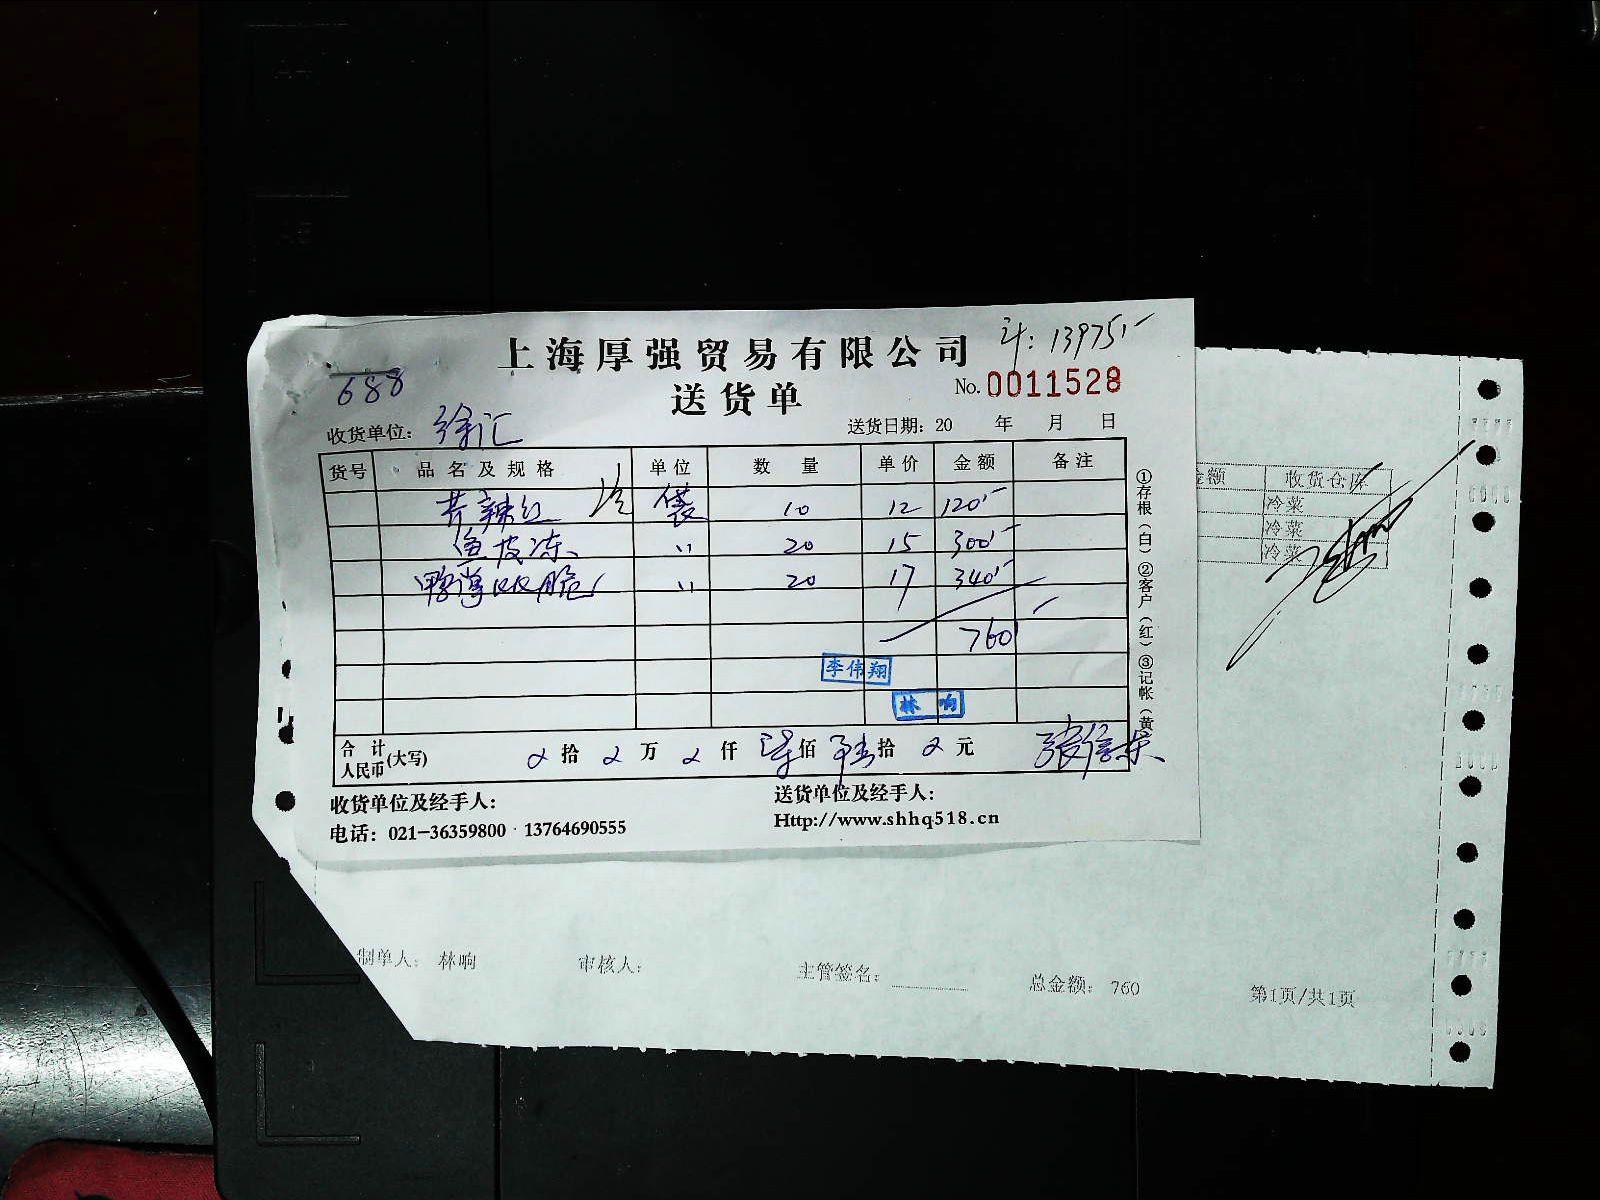 上海厚强贸易有限公司
计: 13975
送货单
No. 0011528
688
收货单位: 徐汇
送货日期: 20 年 月 日
货号 品名及规格 单位 数量 单价 金额 备注
芥辣红 冷 袋 10 12 120
鱼皮冻 〃 20 15 300
20 17 340
760
李伟翔
林 响
合计人民币(大写) 拾 万 仟 柒佰 陆拾 元
收货单位及经手人:
送货单位及经手人:
电话: 021-36359800 13764690555
Http://www.shhq518.cn
①存根(白)②客户(红)③记帐(黄
金额 收货仓库
冷菜
冷菜
冷菜
制单人: 林响 审核人: 主管签名: 总金额: 760 第1页/共1页